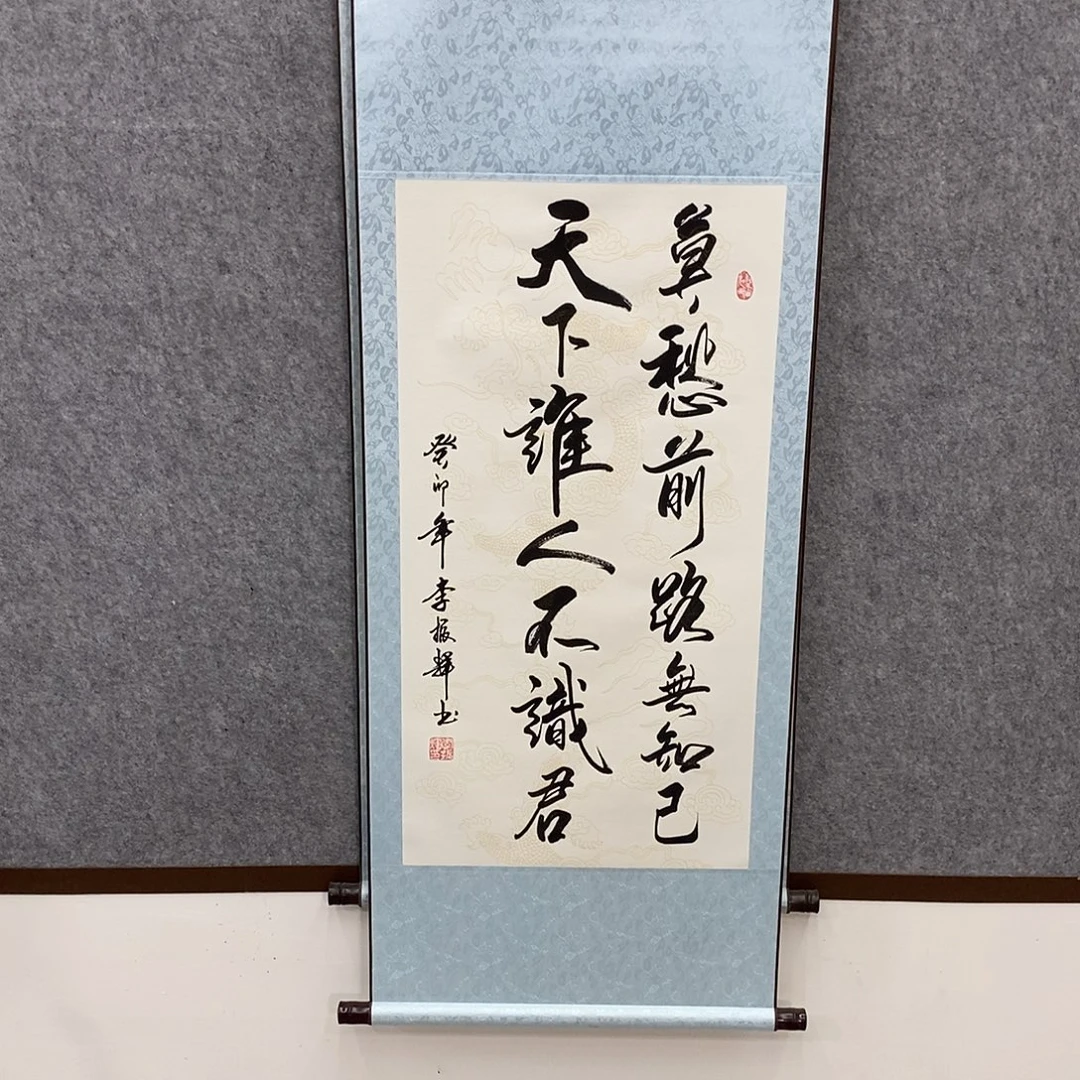 莫愁前路無知己
天下誰人不識君
癸卯年李振輝書